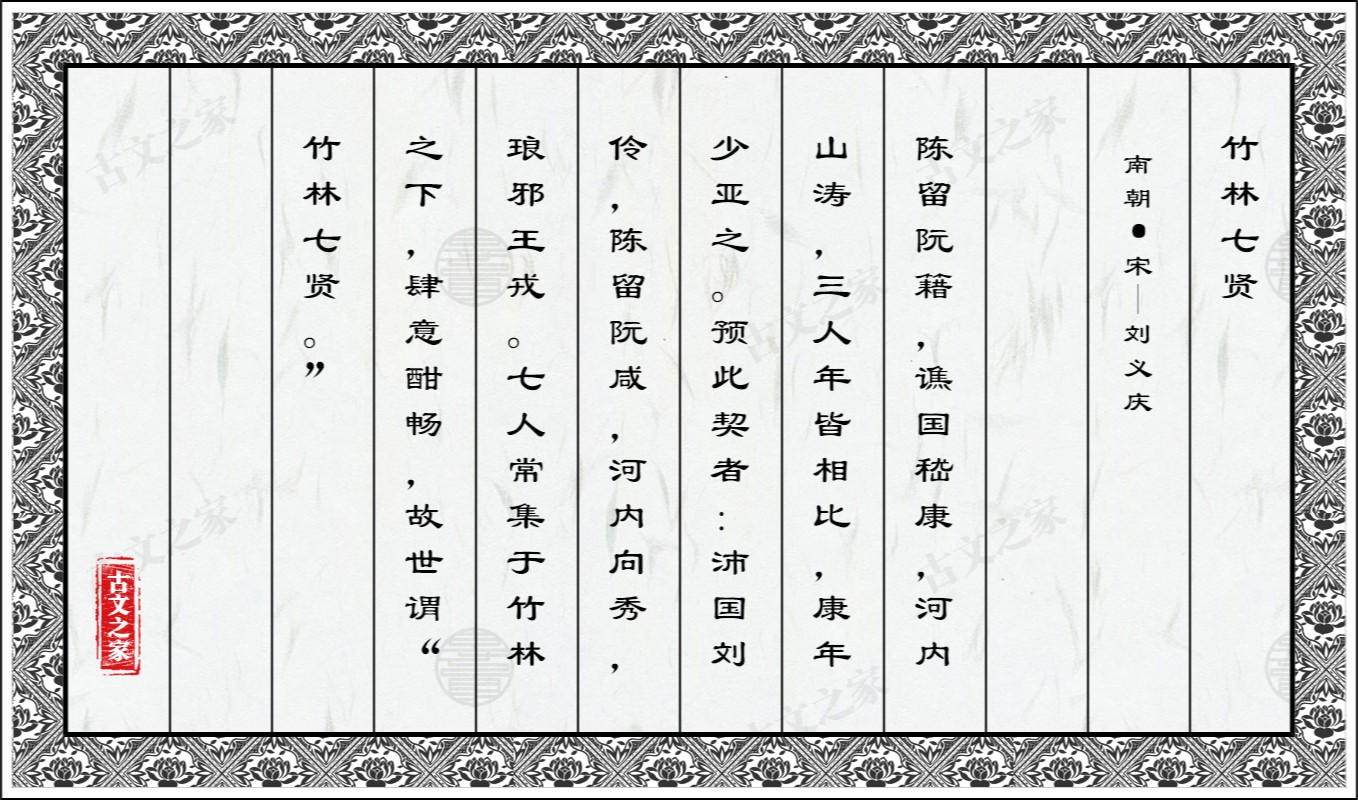 竹林七贤
南朝●宋—刘义庆
陈留阮藉，谯国嵇康，河内
山涛，三人年皆相比，康年
少亚之。预此契者：沛国刘
伶，陈留阮咸，河内向秀，
琅邪王戎。七人常集于竹林
之下，肆意酣畅，故世谓“
竹林七贤。”
古文之家